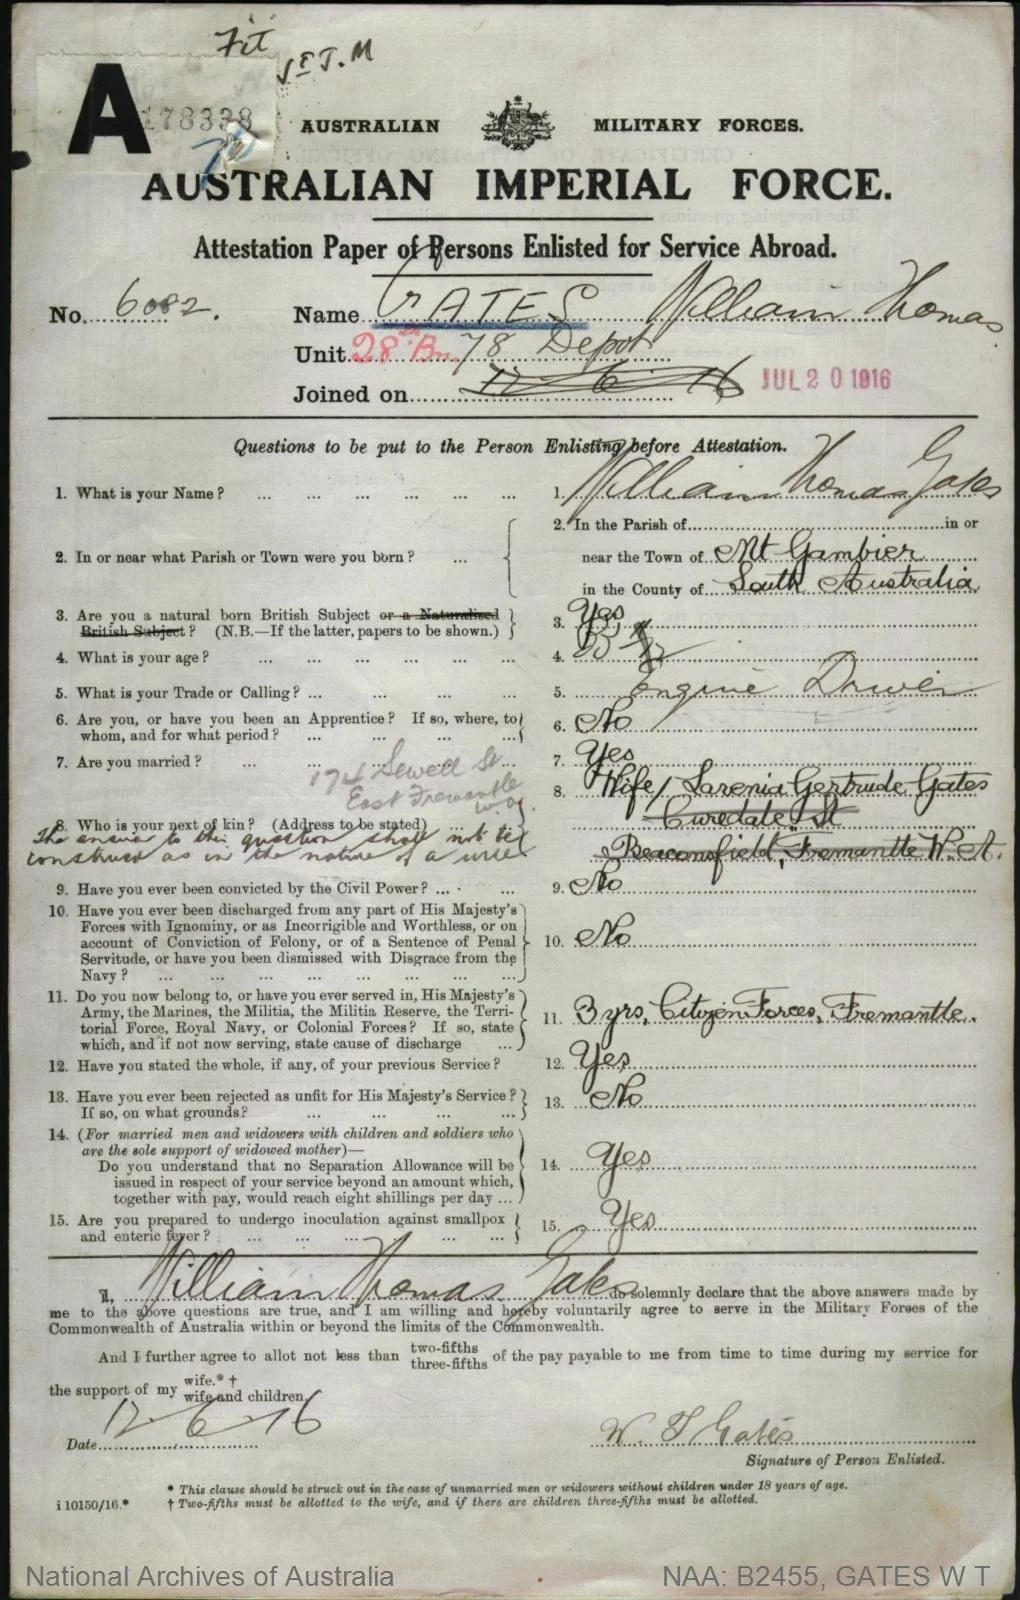 Fit
A
178338
AUSTRALIAN MILITARY FORCES.
AUSTRALIAN IMPERIAL FORCE.
Attestation Paper of Persons Enlisted for Service Abroad.
No. 6082. Name GATES William Thomas
Unit 28th Bn. 78 Depot
Joined on 12 6 16 JUL 20 1916
Questions to be put to the Person Enlisting before Attestation.
1. What is your Name? ... 1. William Thomas Gates
2. In or near what Parish or Town were you born? ... 2. In the Parish of ... in or
near the Town of Mt Gambier
in the County of South Australia
3. Are you a natural born British Subject or a Naturalized
British Subject? (N.B.—If the latter, papers to be shown.) 3. Yes
4. What is your age? ... 4.
5. What is your Trade or Calling? ... 5. Engine Driver
6. Are you, or have you been an Apprentice? If so, where, to
whom, and for what period? ... 6. No
7. Are you married? ... 7. Yes
174 Sewell St
East Fremantle
W.A.
8. Who is your next of kin? (Address to be stated) ... 8. Wife / Sarenia Gertrude Gates
Curedale St
Beaconsfield, Fremantle W. A.
The answer to this question shall not be
construed as in the nature of a will
9. Have you ever been convicted by the Civil Power? ... 9. No
10. Have you ever been discharged from any part of His Majesty's
Forces with Ignominy, or as Incorrigible and Worthless, or on
account of Conviction of Felony, or of a Sentence of Penal
Servitude, or have you been dismissed with Disgrace from the
Navy? ... 10. No
11. Do you now belong to, or have you ever served in, His Majesty's
Army, the Marines, the Militia, the Militia Reserve, the Terri-
torial Force, Royal Navy, or Colonial Forces? If so, state
which, and if not now serving, state cause of discharge ... 11. 3 yrs, Citizen Forces, Fremantle.
12. Have you stated the whole, if any, of your previous Service? 12. Yes
13. Have you ever been rejected as unfit for His Majesty's Service?
If so, on what grounds? ... 13. No
14. (For married men and widowers with children and soldiers who
are the sole support of widowed mother)—
Do you understand that no Separation Allowance will be
issued in respect of your service beyond an amount which,
together with pay, would reach eight shillings per day ... 14. Yes
15. Are you prepared to undergo inoculation against smallpox
and enteric fever? ... 15. Yes
I, William Thomas Gates do solemnly declare that the above answers made by
me to the above questions are true, and I am willing and hereby voluntarily agree to serve in the Military Forces of the
Commonwealth of Australia within or beyond the limits of the Commonwealth.
And I further agree to allot not less than two-fifths three-fifths of the pay payable to me from time to time during my service for
the support of my wife.* † wife and children
Date 12 6 16 W. T Gates
Signature of Person Enlisted.
* This clause should be struck out in the case of unmarried men or widowers without children under 18 years of age.
i 10150/16.* † Two-fifths must be allotted to the wife, and if there are children three-fifths must be allotted.
National Archives of Australia NAA: B2455, GATES W T